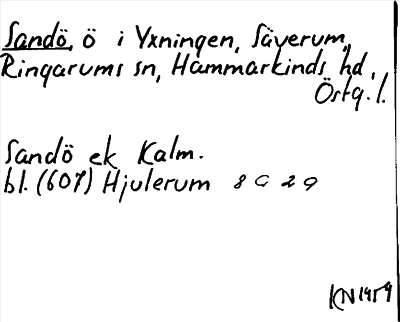 Sandö, ö i Yxningen, Säverum,
Ringarums sn, Hammarkinds hd,
Östg. l.
Sandö ek Kalm.
bl. (607) Hjulerum 8 G 2 g
KN 1959